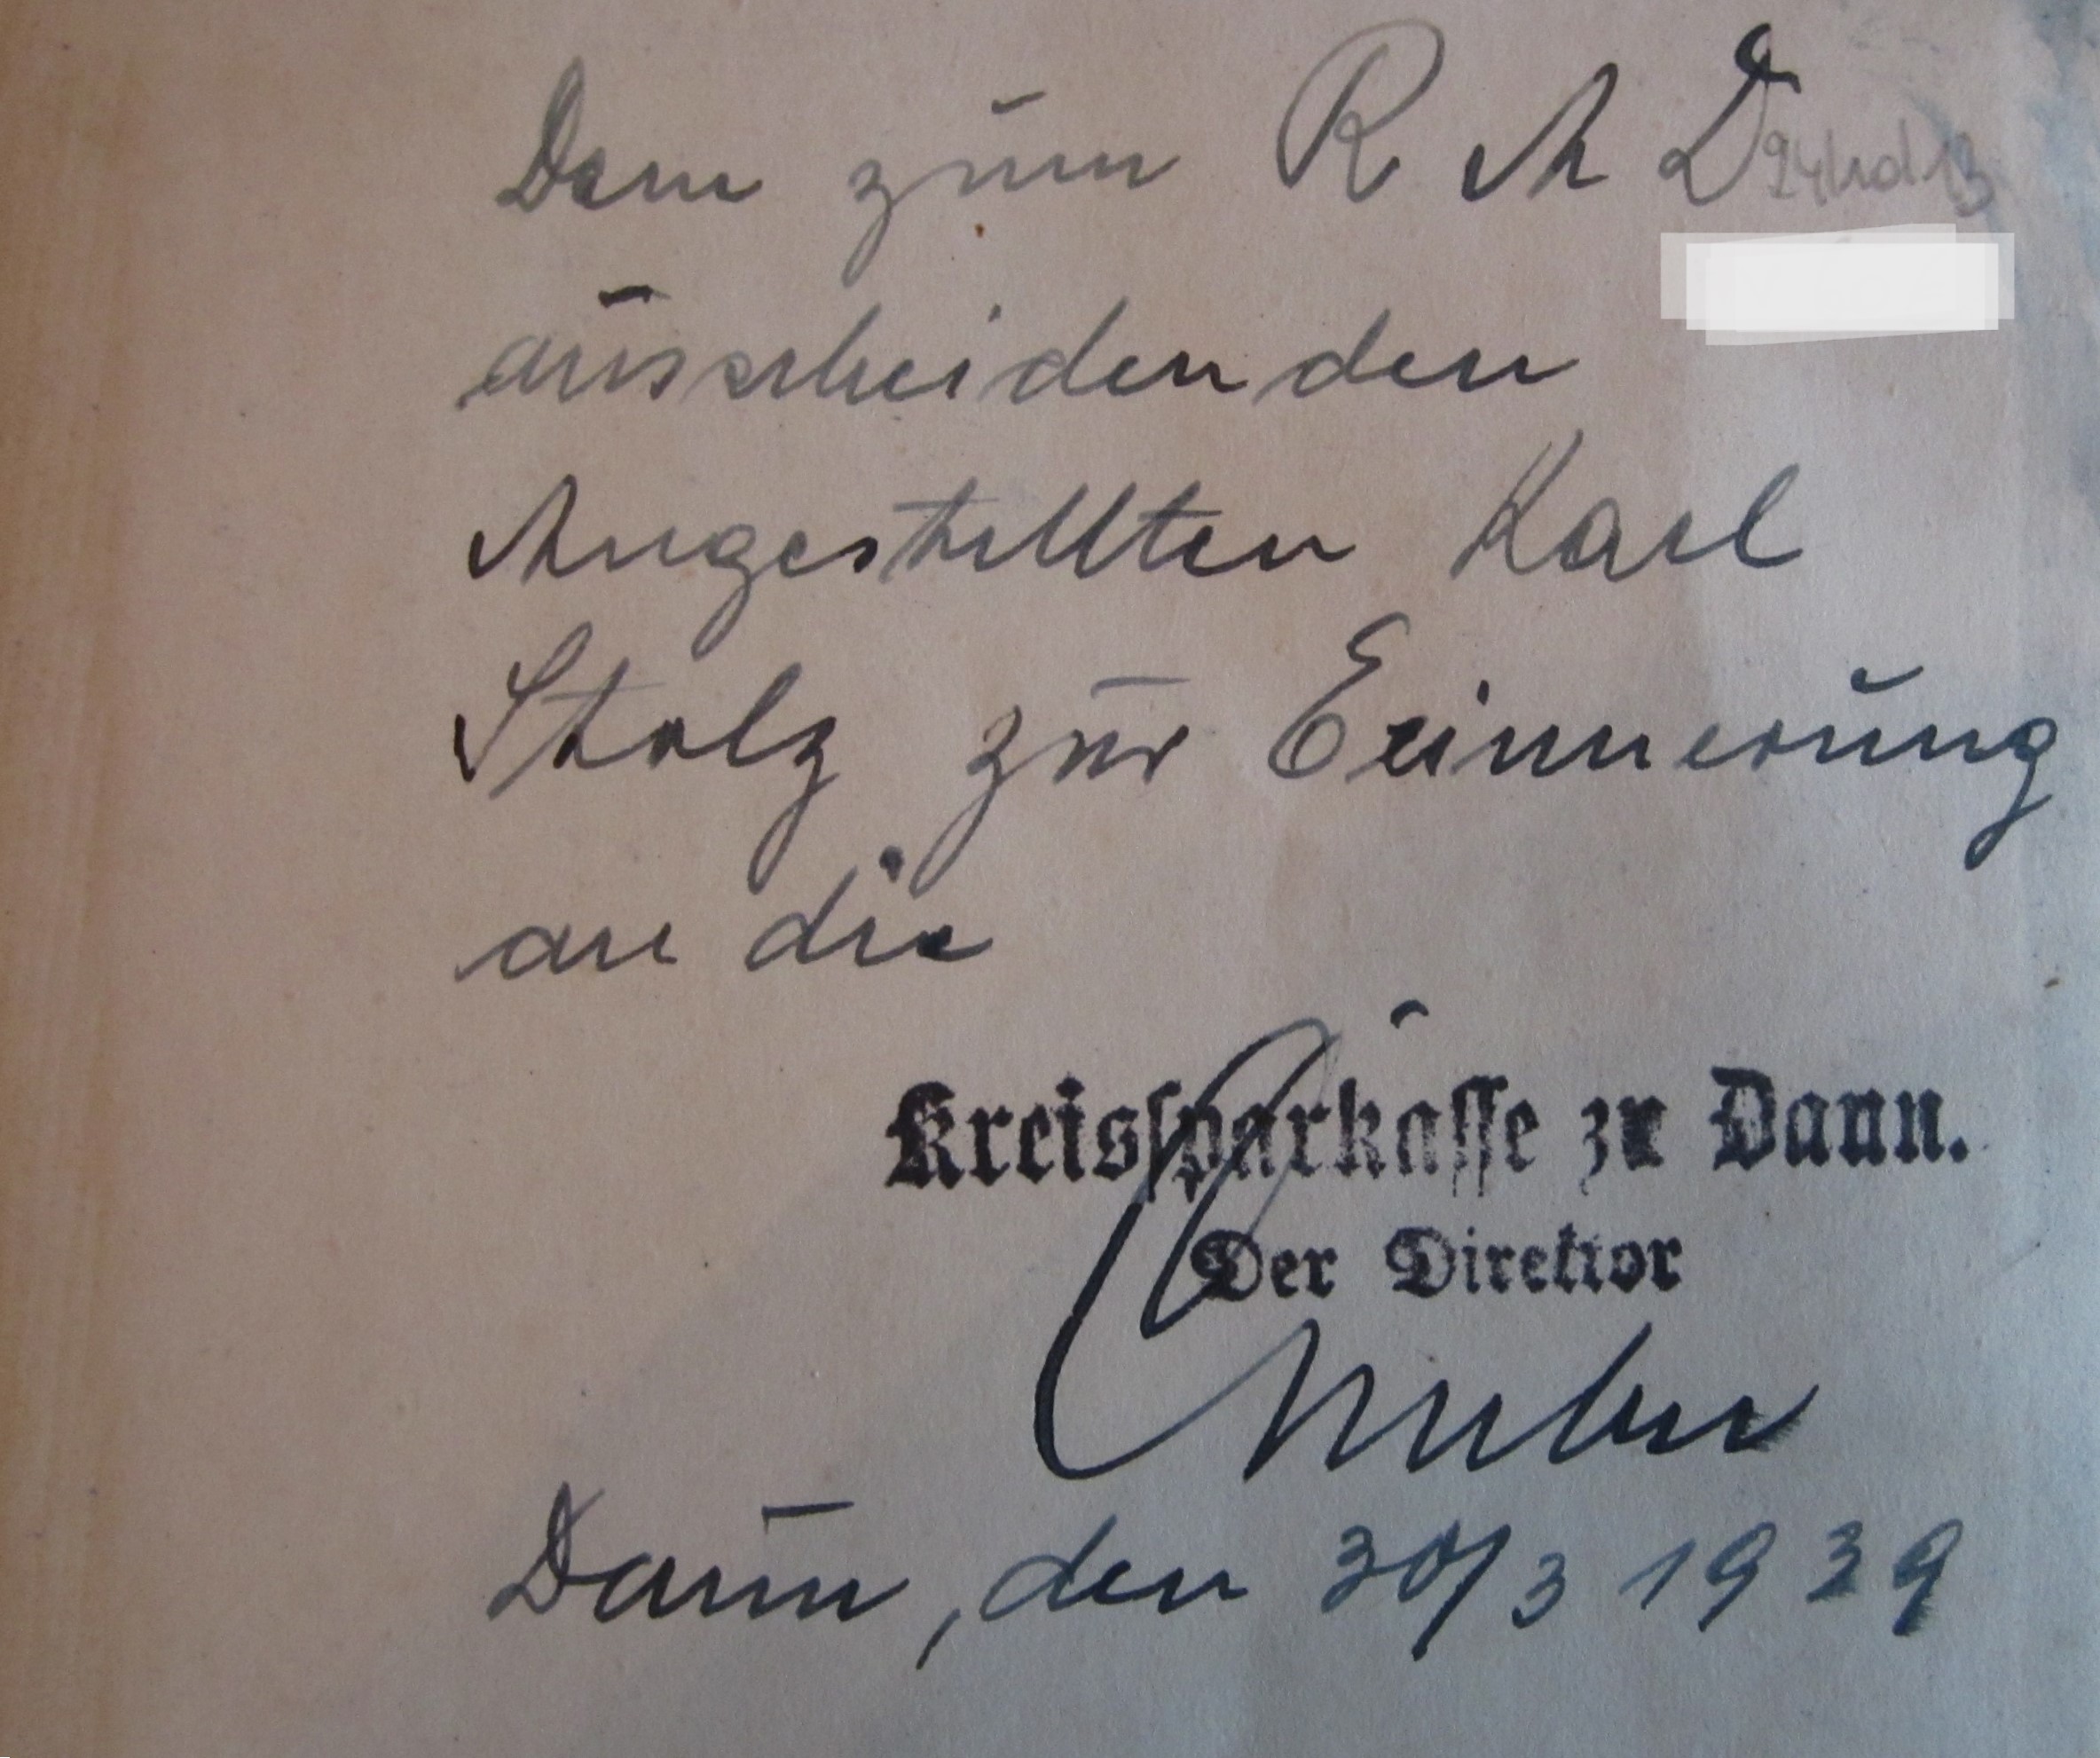 Dem zum R A D
ausscheidenden
Angestellten Karl
Stolz zur Erinnerung
an die
Kreissparkasse zu Daun.
Der Direktor
Daun, den 30/3 1939